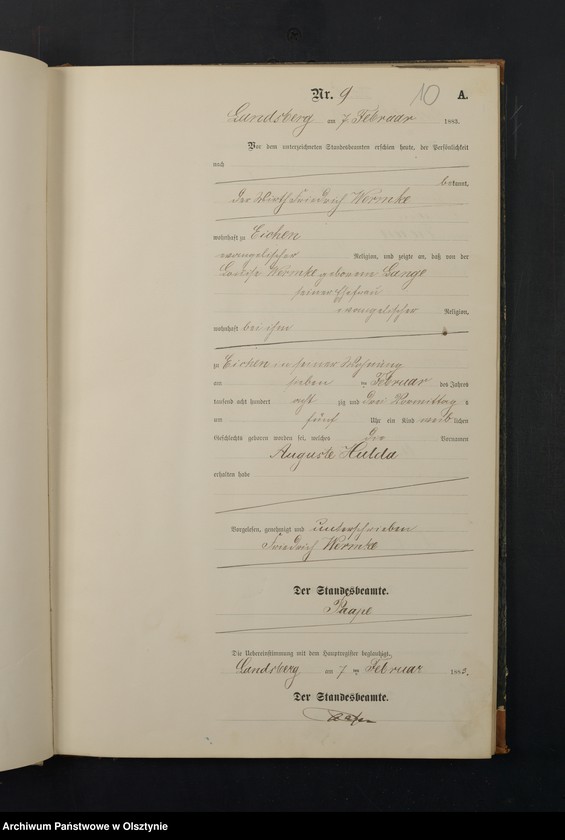 Nr. 9 10 A.
Landsberg am 7 Februar 1883.
Vor dem unterzeichneten Standesbeamten erschien heute, der Persönlichkeit
nach
bekannt,
der Wirth Friedrich Wermke
wohnhaft zu Eichen
evangelischer Religion, und zeigte an, daß von der
Louise Wermke geborenen Lange
seiner Ehefrau
evangelischer Religion,
wohnhaft bei ihm
zu Eichen in seiner Wohnung
am sieben ten Februar des Jahres
tausend acht hundert acht zig und drei Vormittag s
um fünf Uhr ein Kind weib lichen
Geschlechts geboren worden sei, welches die Vornamen
Auguste Hulda
erhalten habe
Vorgelesen, genehmigt und unterschrieben
Friedrich Wermke
Der Standesbeamte.
Die Uebereinstimmung mit dem Hauptregister beglaubigt.
Landsberg am 7 ten Februar 1883.
Der Standesbeamte.
Archiwum Państwowe w Olsztynie